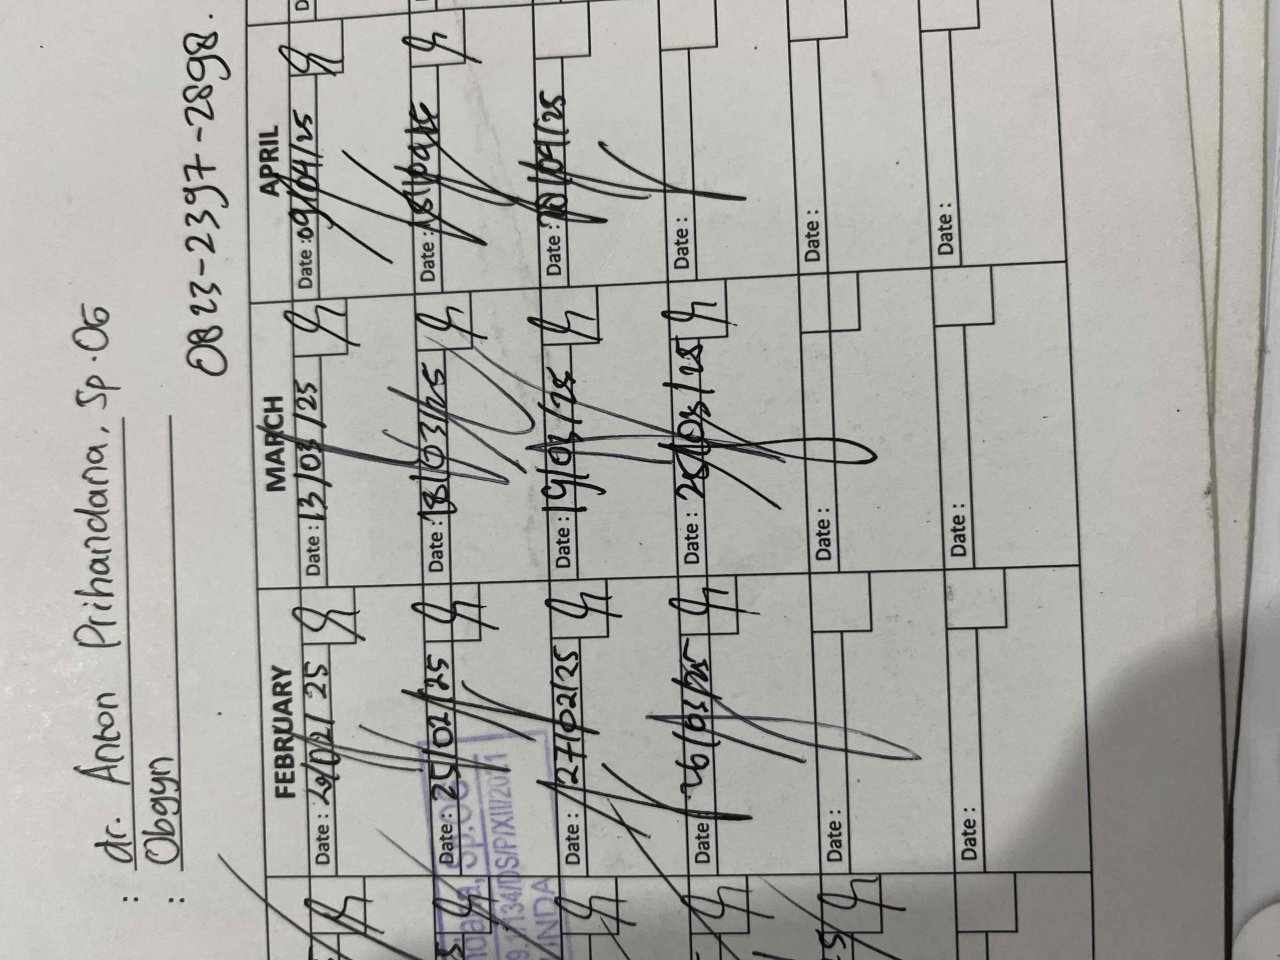 : dr. Anton Prihandana, Sp.OG
: Obgyn
0823-2397-2898.
FEBRUARY
MARCH
APRIL
Date : 20/02/25
Date : 13/03/25
Date : 09/04/25
Date : 25/02/25
Date : 18/03/25
Date :
Date : 27/02/25
Date : 19/03/25
Date : /04/25
Date : 26/03/25
Date : 26/03/25
Date :
Date :
Date :
Date :
Date :
Date :
Date :
Sp.OG
134/DS/P/XII/2021